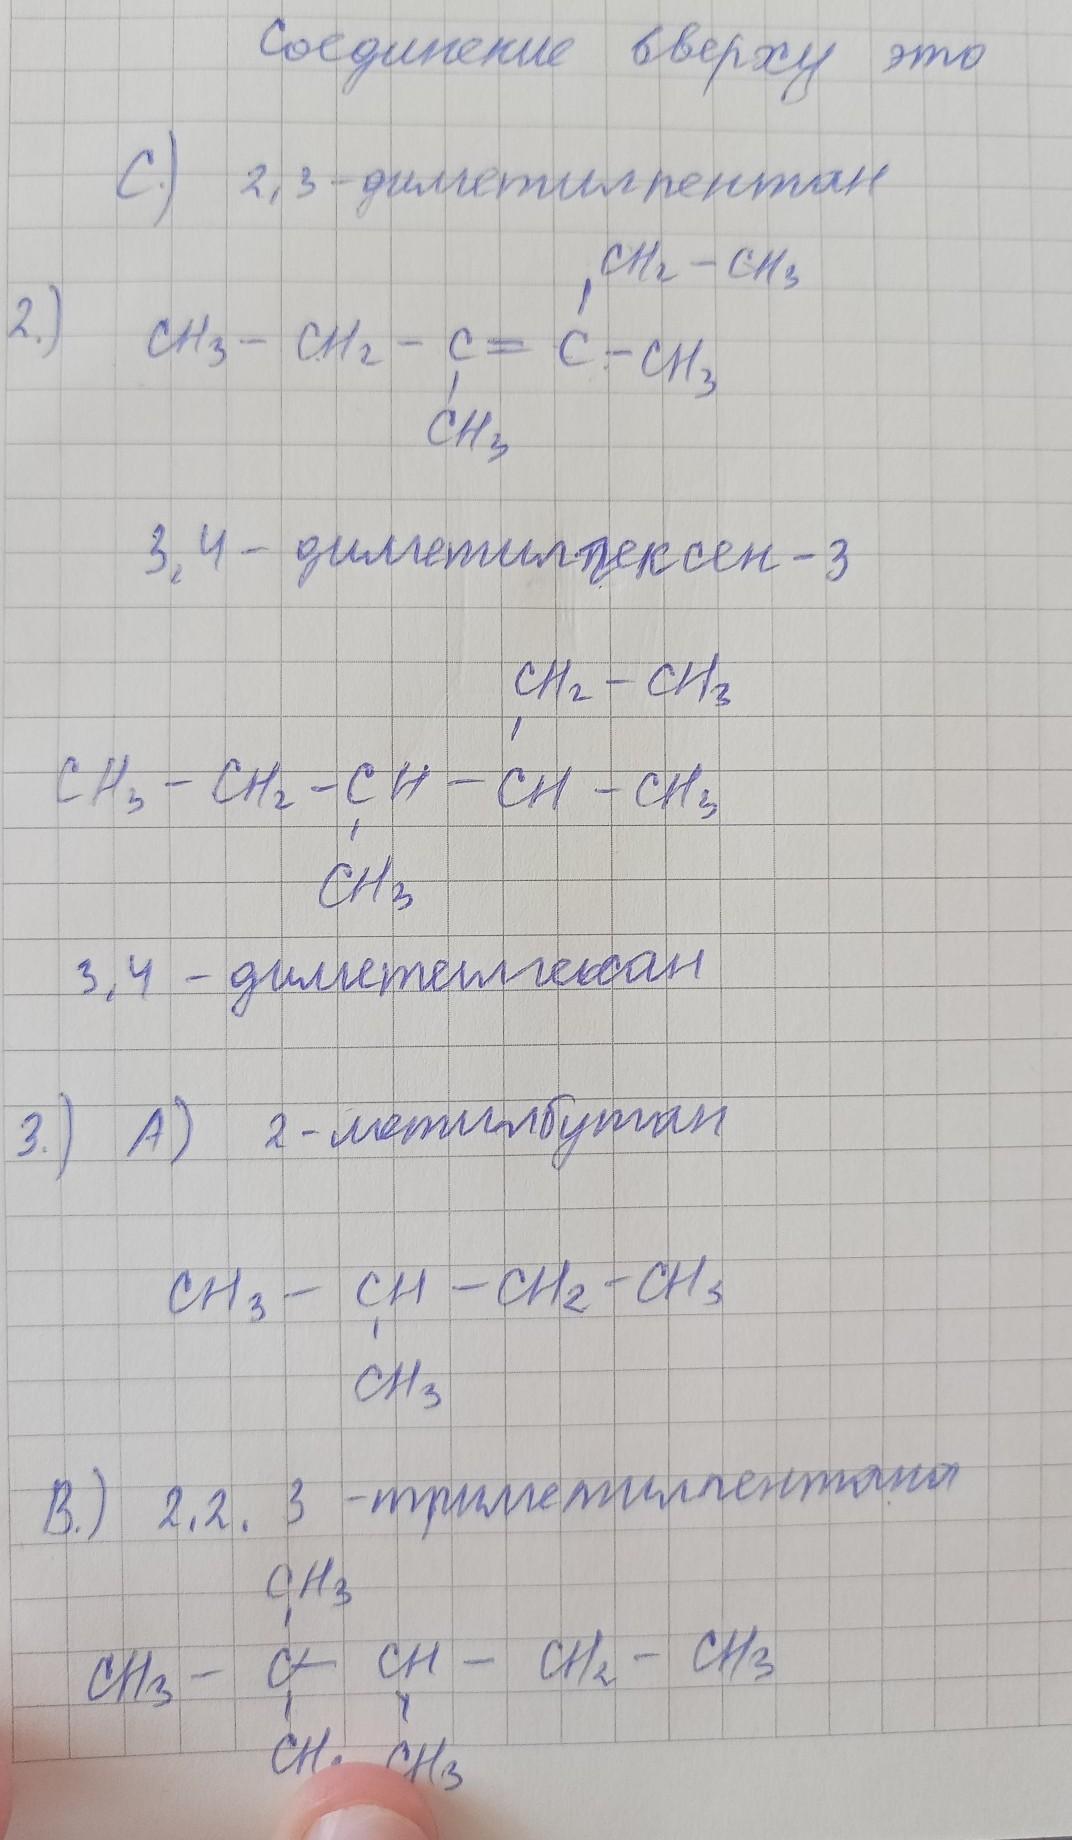 Соединение вверху это
С.) 2,3-диметилпентан
CH2 - CH3
2.) CH3 - CH2 - C = C - CH3
CH3
3,4 - диметилгексен-3
CH2 - CH3
CH3 - CH2 - CH - CH - CH3
CH3
3,4 - диметилгексан
3.) А) 2-метилбутан
CH3 - CH - CH2 - CH3
CH3
В.) 2.2. 3 -триметилпентана
CH3
CH3 - C - CH - CH2 - CH3
CH3